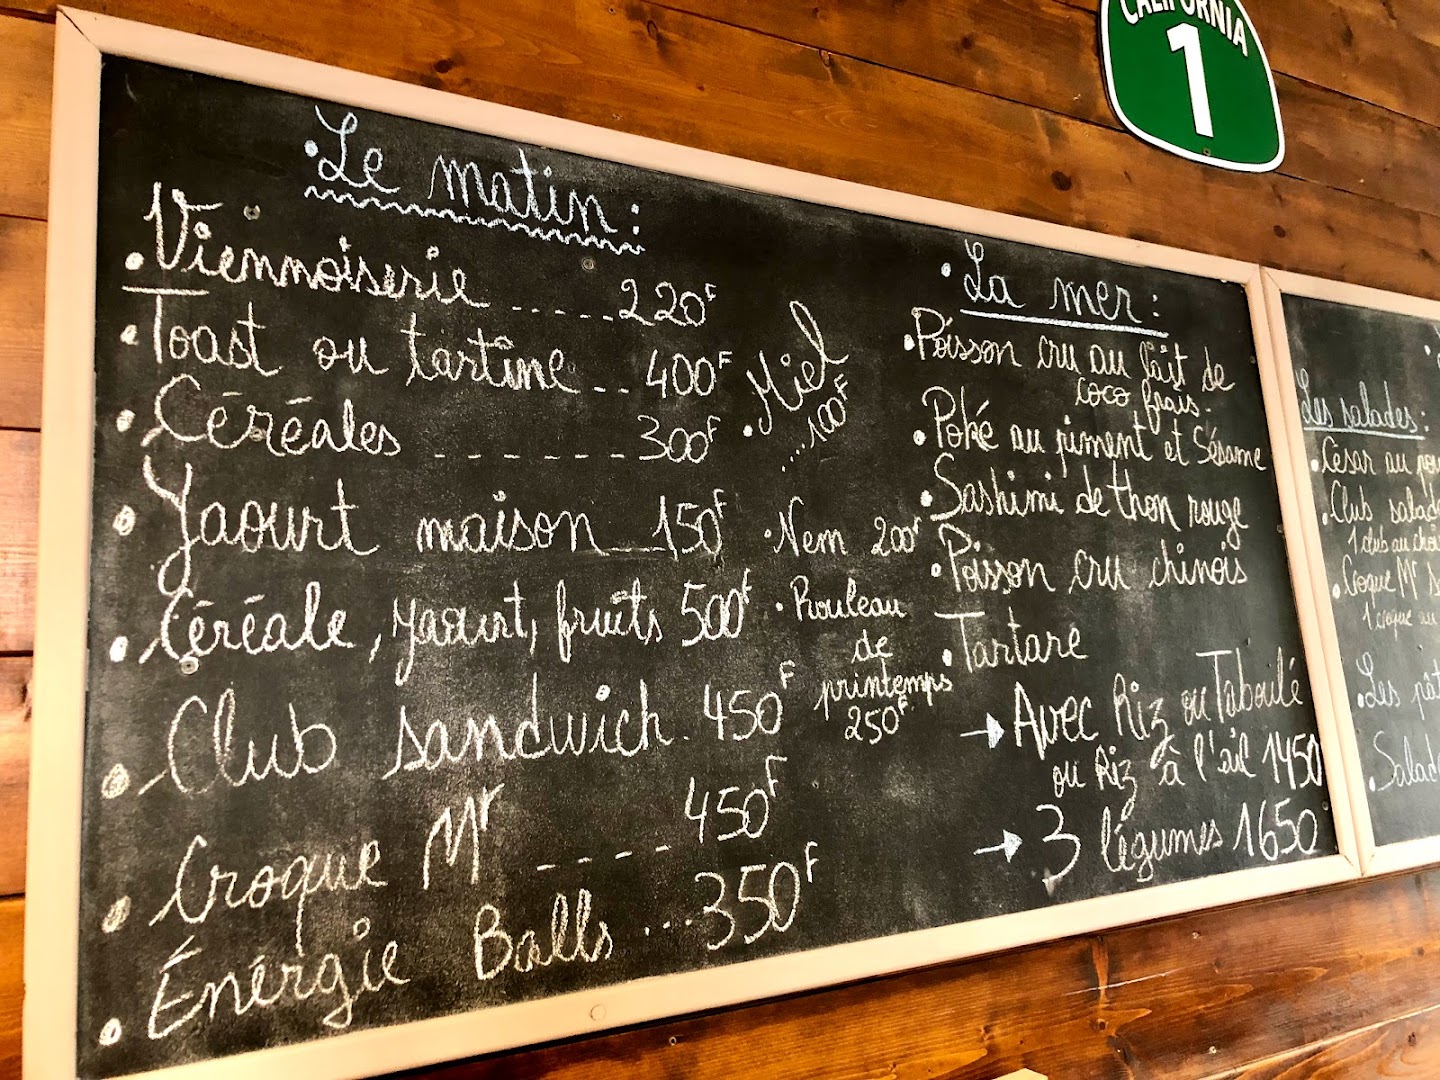 CALIFORNIA
1
• Le matin :
• Viennoiserie ..... 220F
• Toast ou tartine .. 400F
• Céréales ------- 300F
• Yaourt maison 150F
• Céréale, yaourt, fruits 500F
• Club sandwich. 450F
• Croque Mr ---- 450F
• Énérgie Balls ... 350F
• Miel
.... 100F
• Nem 200F
• Rouleau
de
printemps
250F
• La mer :
• Poisson cru au lait de
coco frais.
• Poké au piment et Sésame
• Sashimi de thon rouge
• Poisson cru chinois
• Tartare
→ Avec Riz ou Taboulé
ou Riz à l'ail 1450
→ 3 légumes 1650
Les salades :
• César au
• Club
1 club au
• Croque Mr
1 croque au
• Les
•